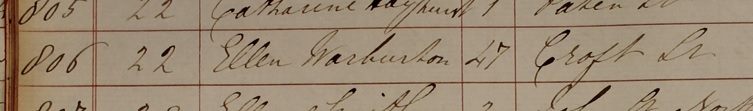 805 22 Catharine Hayhurst 1
806 22 Ellen Warburton 47 Croft St
22 Ellen Smith